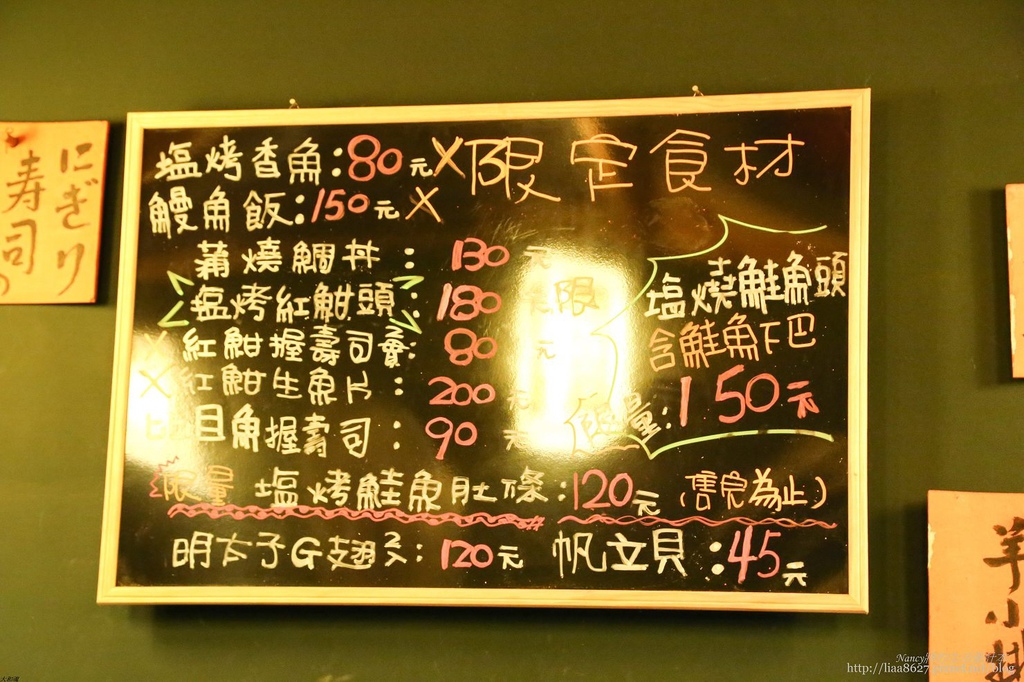 限定食材
塩烤香魚:80元X
鰻魚飯:150元X
蒲燒鯛丼:130元
塩烤紅魽頭:180元 限
X 紅魽握壽司2貫:80元
X 紅魽生魚片:200元
比目魚握壽司:90元
塩燒鮭魚頭
含鮭魚下巴
限量:150元
限量 塩烤鮭魚肚條:120元(售完為止)
明太子G翅2支:120元
帆立貝:45元
にぎり
寿司の
羊小排
http://liaa8627